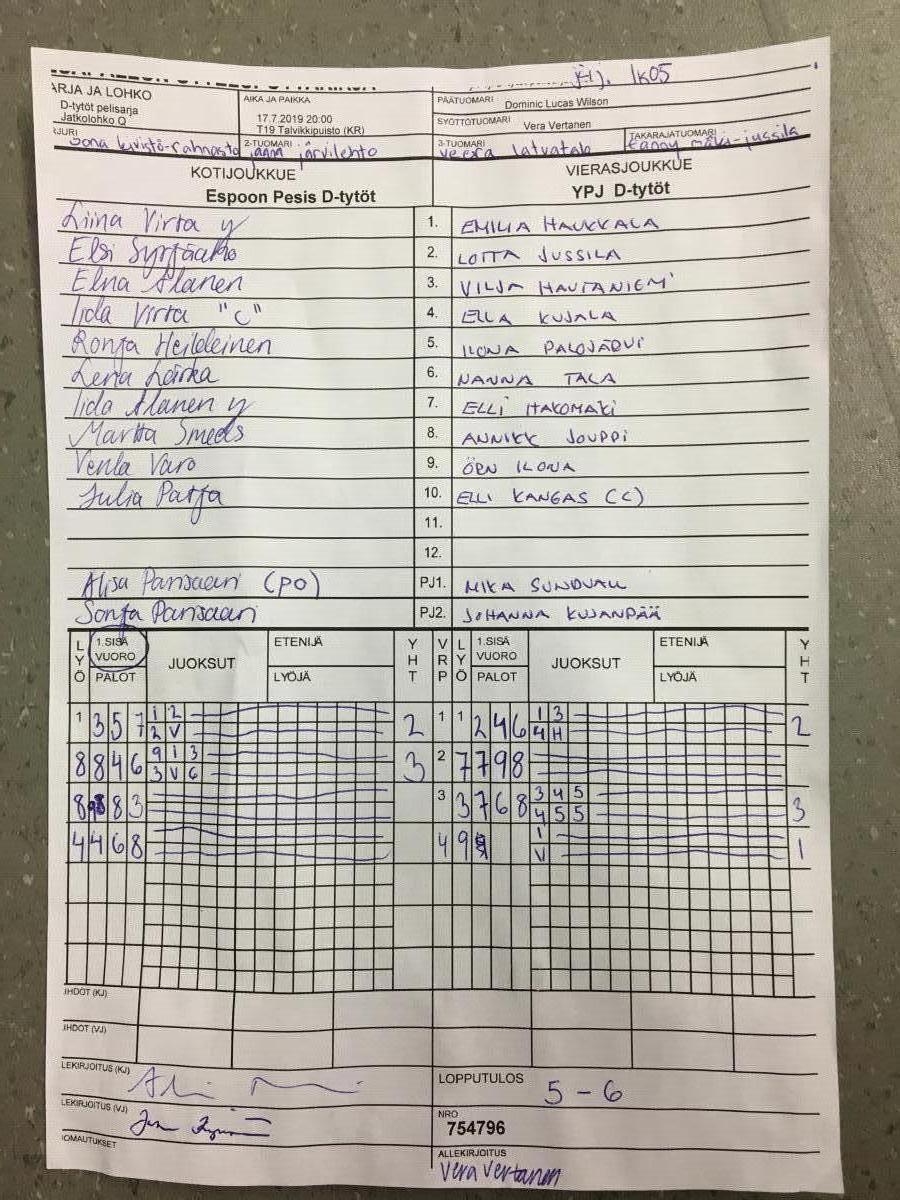 HJ. 1k05
ARJA JA LOHKO
D-tytöt pelisarja
Jatkolohko Q
AIKA JA PAIKKA
17.7.2019 20:00
T19 Talvikkipuisto (KR)
PÄÄTUOMARI Dominic Lucas Wilson
SYÖTTÖTUOMARI Vera Vertanen
RJURI
2-TUOMARI
3-TUOMARI
TAKARAJATUOMARI
järvilehto
KOTIJOUKKUE
Espoon Pesis D-tytöt
VIERASJOUKKUE
YPJ D-tytöt
Liina Virta y 1. EMILIA HAUKKALA
Elsi 2. LOTTA JUSSILA
Elna Alanen 3. VILJA HAUTANIEMI
Iida Virta "C" 4. ELLA KUJALA
Ronja Heikkeinen 5. ILONA PALOJÄRVI
6. NANNA TALA
Iida Alanen y 7. ELLI HAKOMÄKI
Martta Smeds 8. ANNIKK JOUPPI
Venla Varo 9. ÖRN ILONA
Julia Patja 10. ELLI KANGAS (C)
11.
12.
Alisa Parisaari (PO) PJ1. MIKA SUNDVALL
Sonja Parisaari PJ2. JOHANNA KUJANPÄÄ
LYÖ 1.SISÄ VUORO PALOT JUOKSUT ETENIJÄ LYÖJÄ YHT VRP LYÖ 1.SISÄ VUORO PALOT JUOKSUT ETENIJÄ LYÖJÄ YHT
1 3 5 7 1 2 2 1 1 2 4 6 1 3 2
2 V 4 H
8 8 4 6 9 1 3 3 2 7 7 9 8
3 V 6
8 8 3 3 3 7 6 8 3 4 5 3
4 5 5
4 4 6 8 4 9 1 1
V
JHDOT (KJ)
JHDOT (VJ)
LEKIRJOITUS (KJ)
LOPPUTULOS 5 - 6
LEKIRJOITUS (VJ)
NRO
754796
IOMAUTUKSET
ALLEKIRJOITUS
Vera Vertanen